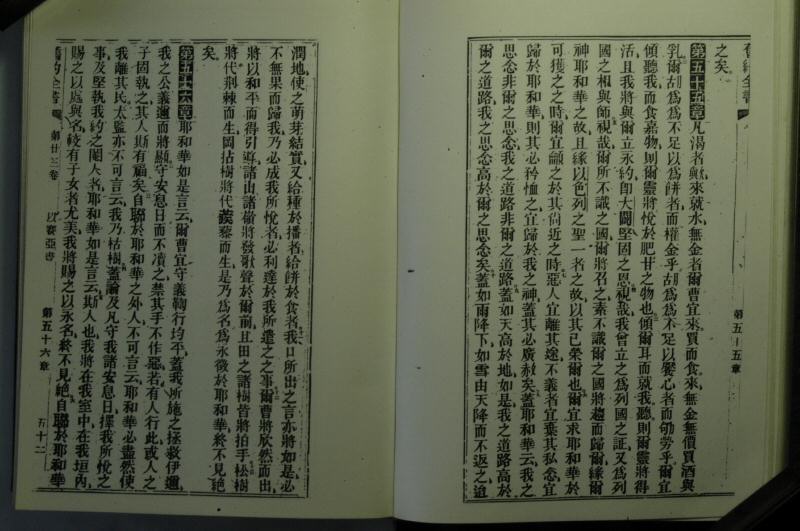 舊約全書
之矣
第五十五章凡渴者歟來就水無金者爾曹宜來買而食來無金無價買酒與
乳爾胡爲爲不足以爲餅者而權金乎胡爲爲不足以饜心者而劬勞乎爾宜
傾聽我而食嘉物則爾靈將悅於肥甘之物也傾爾耳而就我聽則爾靈將得
活且我將與爾立永約卽大闢堅固之恩視哉我曾立之爲列國之証又爲列
國之相與師視哉爾所不識之國爾將召之素不識爾之國將趨而歸爾緣爾
神耶和華之故且緣以色列之聖一者之故以其已榮爾也爾宜求耶和華於
可獲之之時爾宜籲之於其尙近之時惡人宜離其途不義者宜棄其私念宜
歸於耶和華則其必矜恤之宜歸於我之神蓋其必廣赦矣蓋耶和華云我之
思念非爾之思念我之道路非爾之道路蓋如天高於地如是我之道路高於
爾之道路我之思念高於爾之思念矣蓋如雨降下如雪由天降而不返之迨
第五十五章
潤地使之萌芽結實又給種於播者給餅於食者我口所出之言亦將如是必
不無果而歸我乃必成我所悅者必利達於我所遣之之事爾曹將欣然而出
將以和平而得引導諸山諸嶺將發歌聲於爾前且田之諸樹皆將拍手松樹
將代荊棘而生岡拈樹將代蒺藜而生是乃爲名爲永徵於耶和華終不見絕
矣
第五十六章耶和華如是言云爾曹宜守義鞫行均平蓋我所施之拯救伊邇
我之公義邇而將顯守安息日而不凟之禁其手不作惡者有人行此或人之
子固執之其人斯有福矣自聯於耶和華之外人不可言云耶和華必盡然使
我離其民太監亦不可言云我乃枯樹蓋論及凡守我諸安息日擇我所悅之
事及堅執我約之閹人者耶和華如是言云斯人也我將在我室中在我垣內
賜之以處與名較有子女者尤美我將賜之以永名終不見絕自聯於耶和華
舊約全書 第廿三卷 以賽亞書 第五十六章 五十二